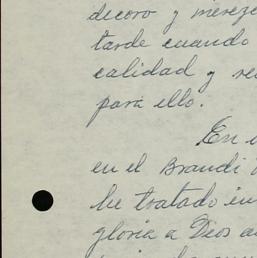 decoro y merez
tarde cuando
calidad y re
para ello.
En
en el Brandi
he tratado en
gloria a Dios